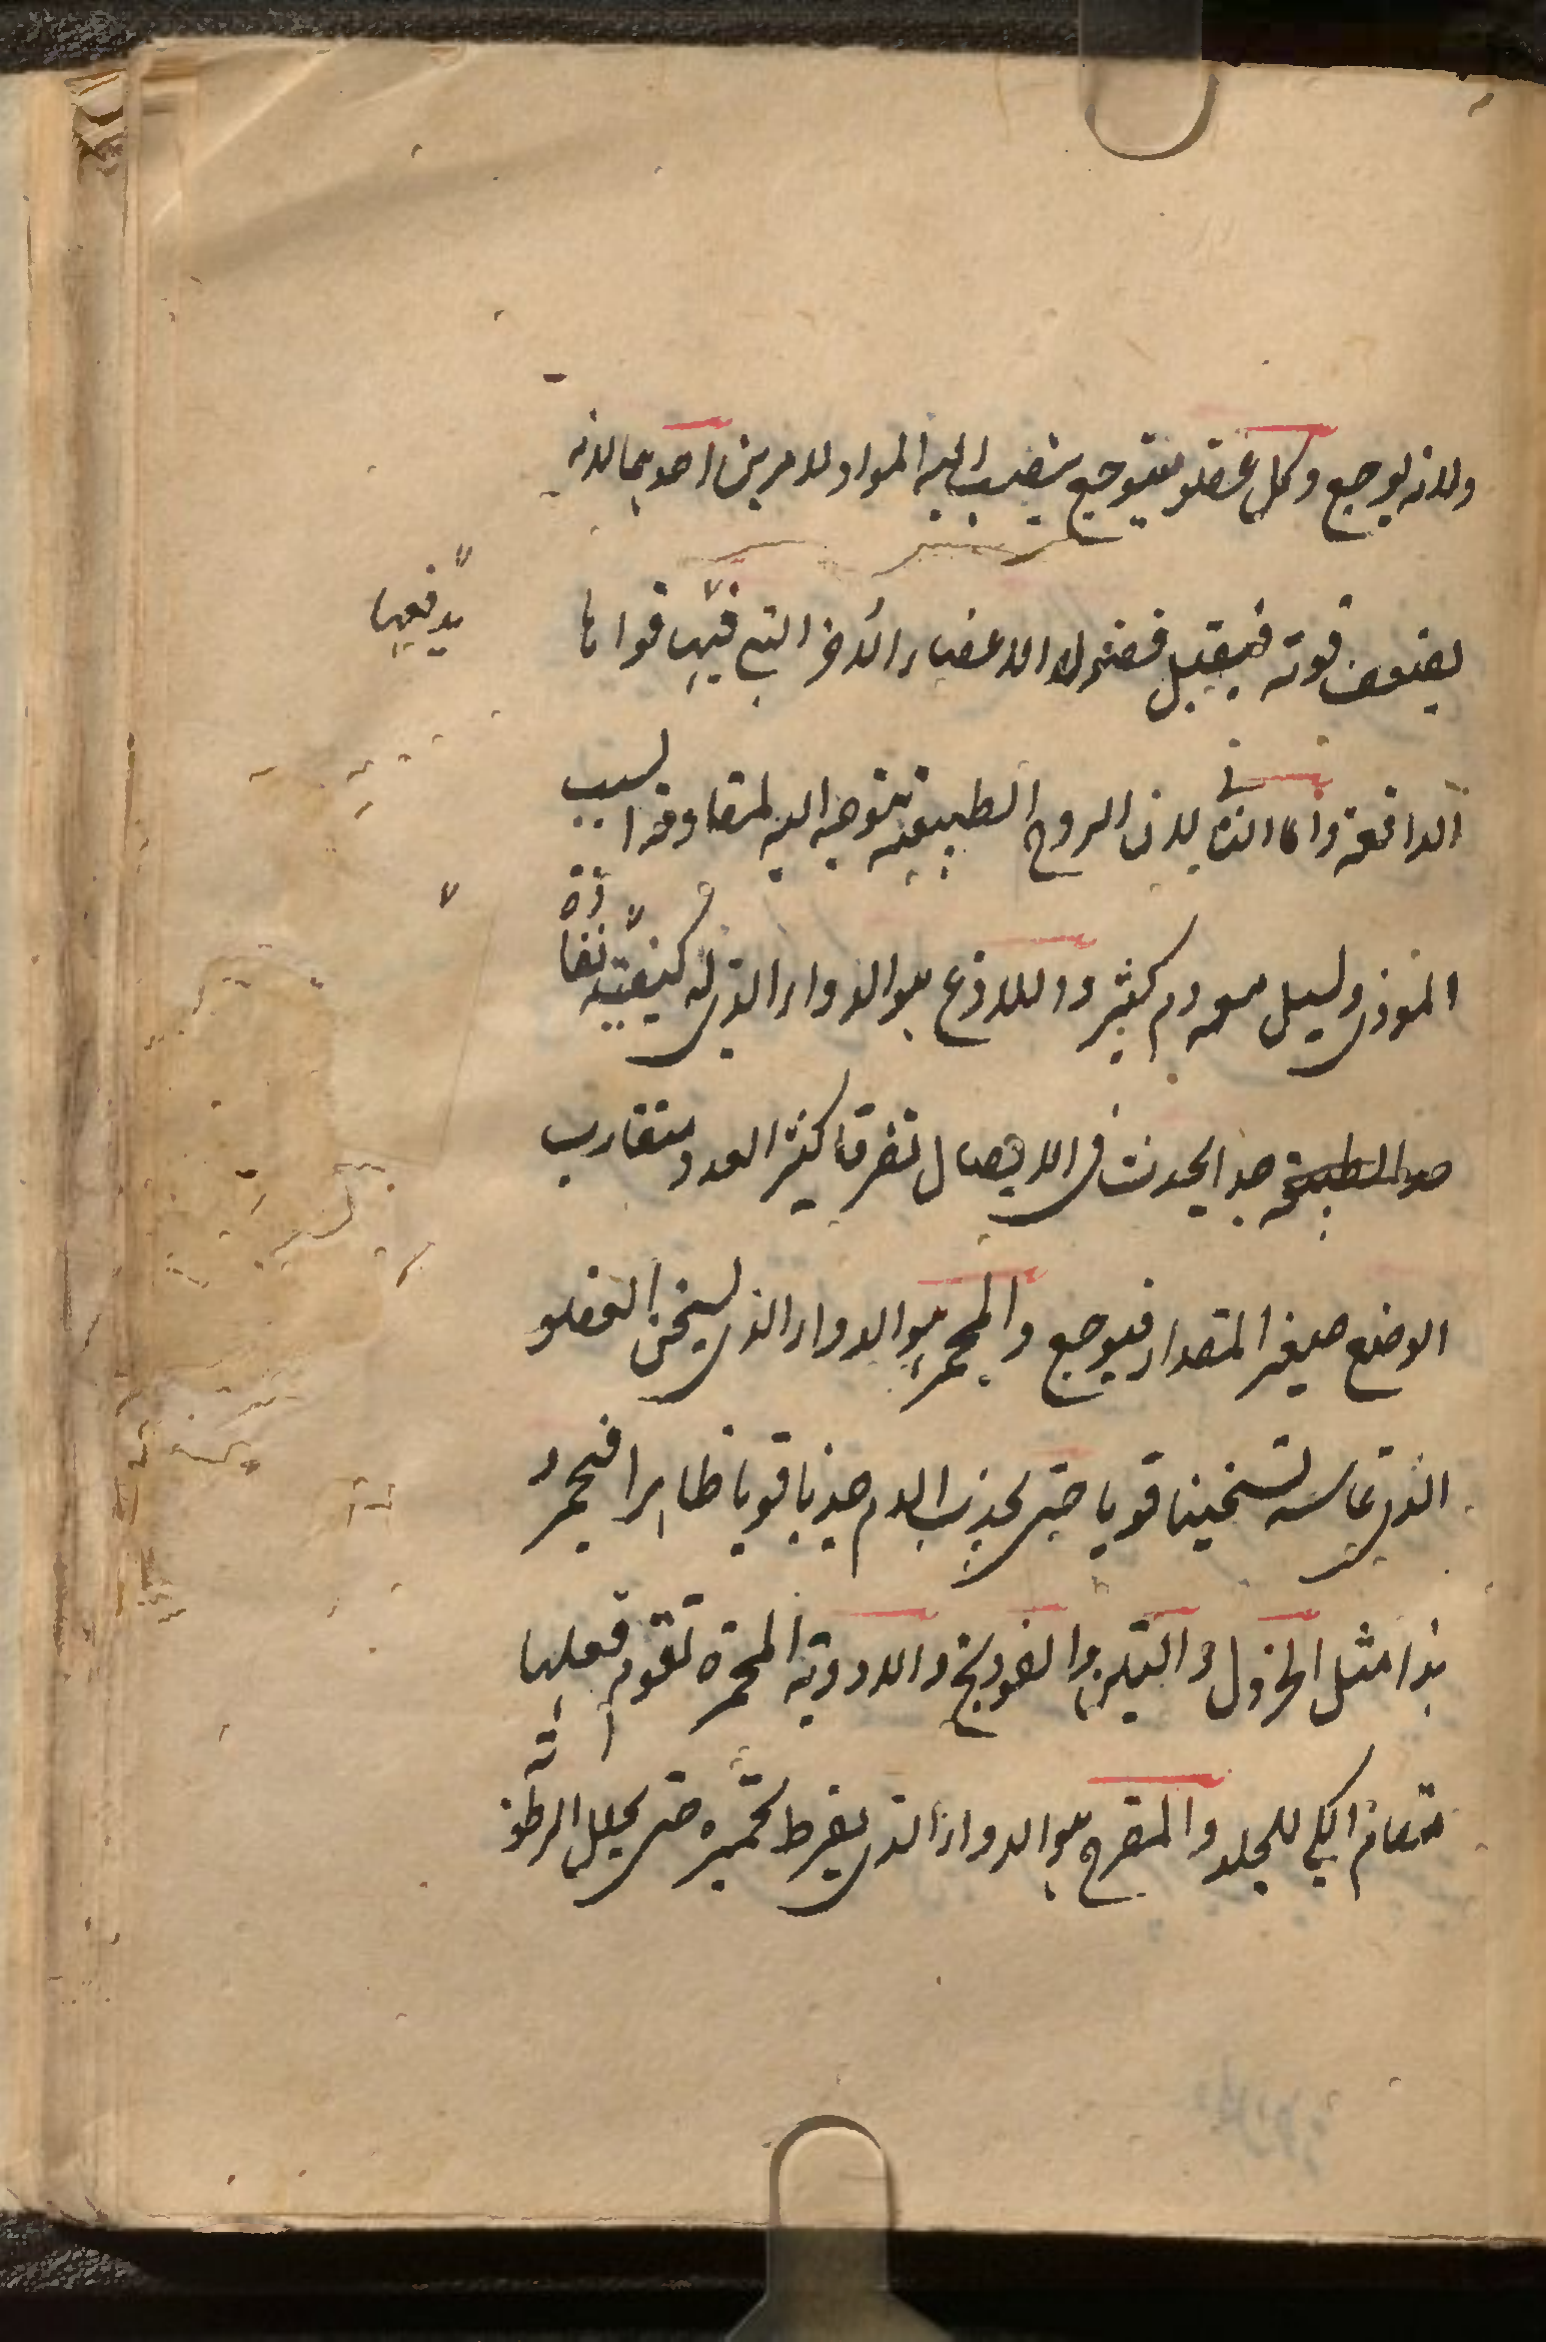 ولانه يوجع وكل عضو يتوجع ينصب اليه المواد لامرين احدهما لانه
يضعف قوته فيقبل فضول الاعضاء الأخر التي فيها قواها
يدفعها
الدافعة واما الثاني لان الروح الطبيعية تتوجه اليه لمقاومة السبب
الموذي وليسل معه دم كثير واللاذع هو الدواء الذي له كيفية نفاذة
جدا يحدث في الاتصال تفرقا كثير العدد متقارب
الوضع صغير المقدار فيوجع والمحمر هو الدواء الذي يسخن العضو
الذي يماسه تسخينا قويا حتى يجذب الدم جذبا قويا ظاهرا فيحمر
هذا مثل الخردل والتين والفودنج والادوية المحمرة تقوم فعلها
مقام الكي للجلد والمقرح هو الدواء الذي يفرط تحميره حتى يحلل الرطوبة